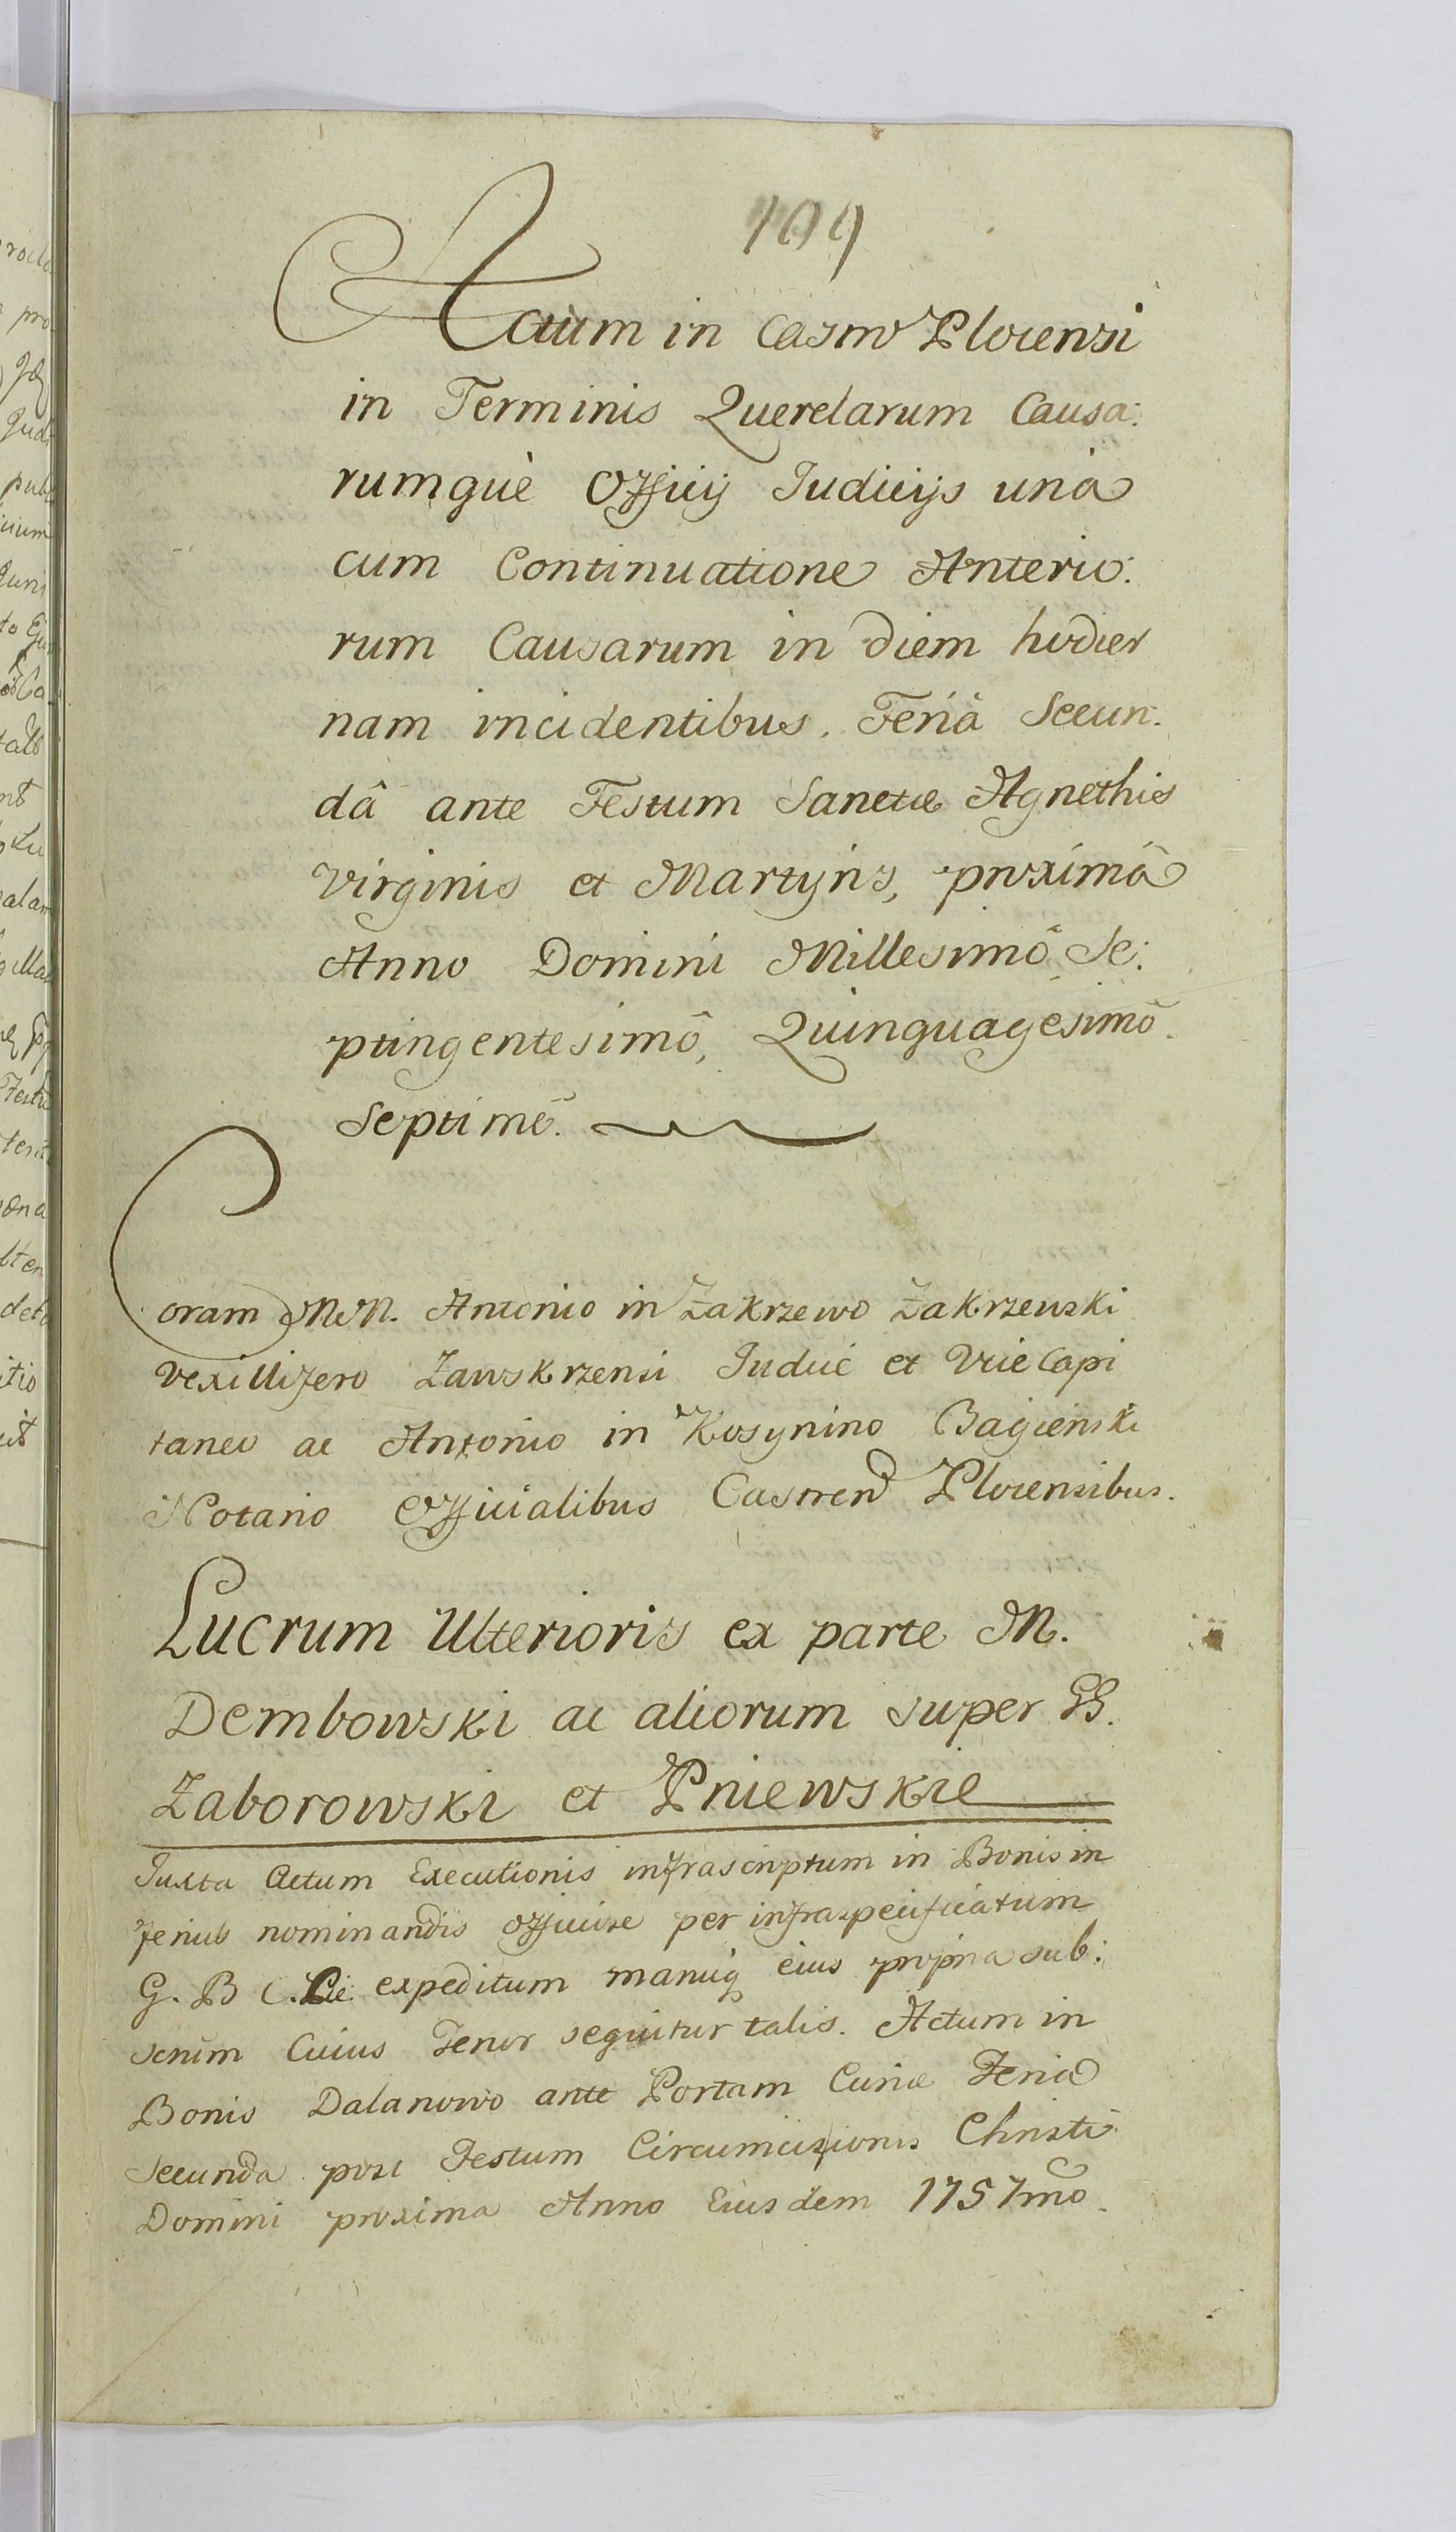 Actum in Castro Plocensi
in Terminis Querelarum Causa:
rumquè Officij Judicijs unà
cum Continuatione Anterio:
rum Causarum in diem hodier
nam incidentibus. Feriâ Secun:
dâ ante Festum Sanctæ Agnethis
Virginis et Martyris, proximâ
Anno Domini Millesimô Se:
ptingentesimô, Quinquagesimô
Septimô.
Coram MM. Antonio in Zakrzewo Zakrzewski
Vexillifero Zawskrzensi Judice et Vice Capi
taneo ac Antonio in Kosynino Bagienski
Notario Officialibus Castren Plocensibus.
Lucrum Ulterioris ex parte M.
Dembowski ac aliorum super GG.
Zaborowski et Pniewskie
Juxta Actum Executionis infrascriptum in Bonis in
ferius nominandis officiose per infraspecificatum
G. B C. expeditum manuq eius propria sub:
scrum Cuius Tenor sequitur talis. Actum in
Bonis Dalanowo ante Portam Curiæ Feria
Secunda post Festum Circumcisionis Christi
Domini proxima Anno Eiusdem 1757mo.